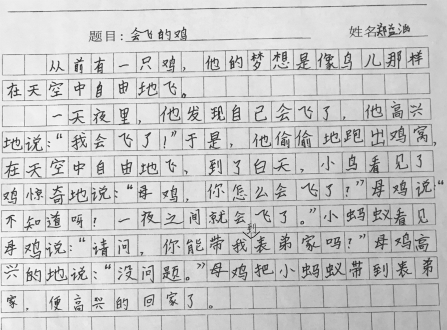 题目：会飞的鸡 姓名郑益涵
从前有一只鸡，他的梦想是像鸟儿那样
在天空中自由地飞。
一天夜里，他发现自己会飞了，他高兴
地说：“我会飞了！”于是，他偷偷地跑出鸡窝，
在天空中自由地飞，到了白天，小鸟看见了
鸡惊奇地说：“母鸡，你怎么会飞了？”母鸡说“
不知道呀！一夜之间就会飞了。”小蚂蚁看见
母鸡说：“请问，你能带我到表弟家吗？”母鸡高
兴的地说：“没问题。”母鸡把小蚂蚁带到表弟
家，便高兴的回家了。